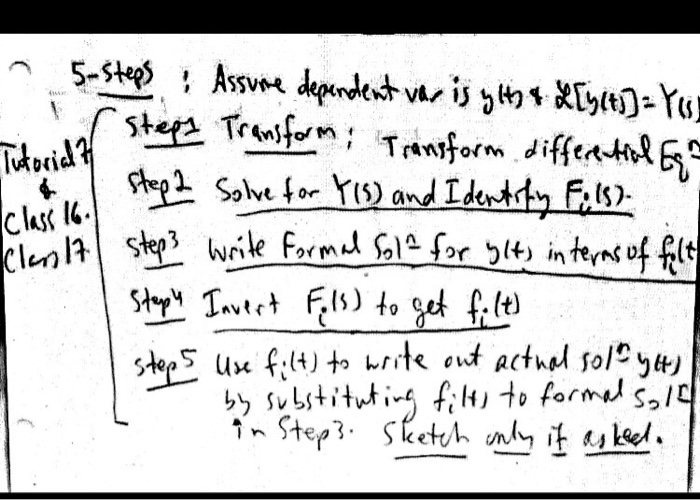 5-Steps : Assume dependent var is y(t) & L[y(t)] = Y(s)
Tutorial 7
&
Class 16.
Class 17
Step1 Transform : Transform differential Eqⁿ
Step2 Solve for Y(s) and Identify Fᵢ(s).
Step3 Write Formal Solⁿ for y(t) in terms of fᵢ(t
Step4 Invert Fᵢ(s) to get fᵢ(t)
Step5 Use fᵢ(t) to write out actual solⁿ y(t)
by substituting fᵢ(t) to formal Solⁿ
in Step3. Sketch only if asked.